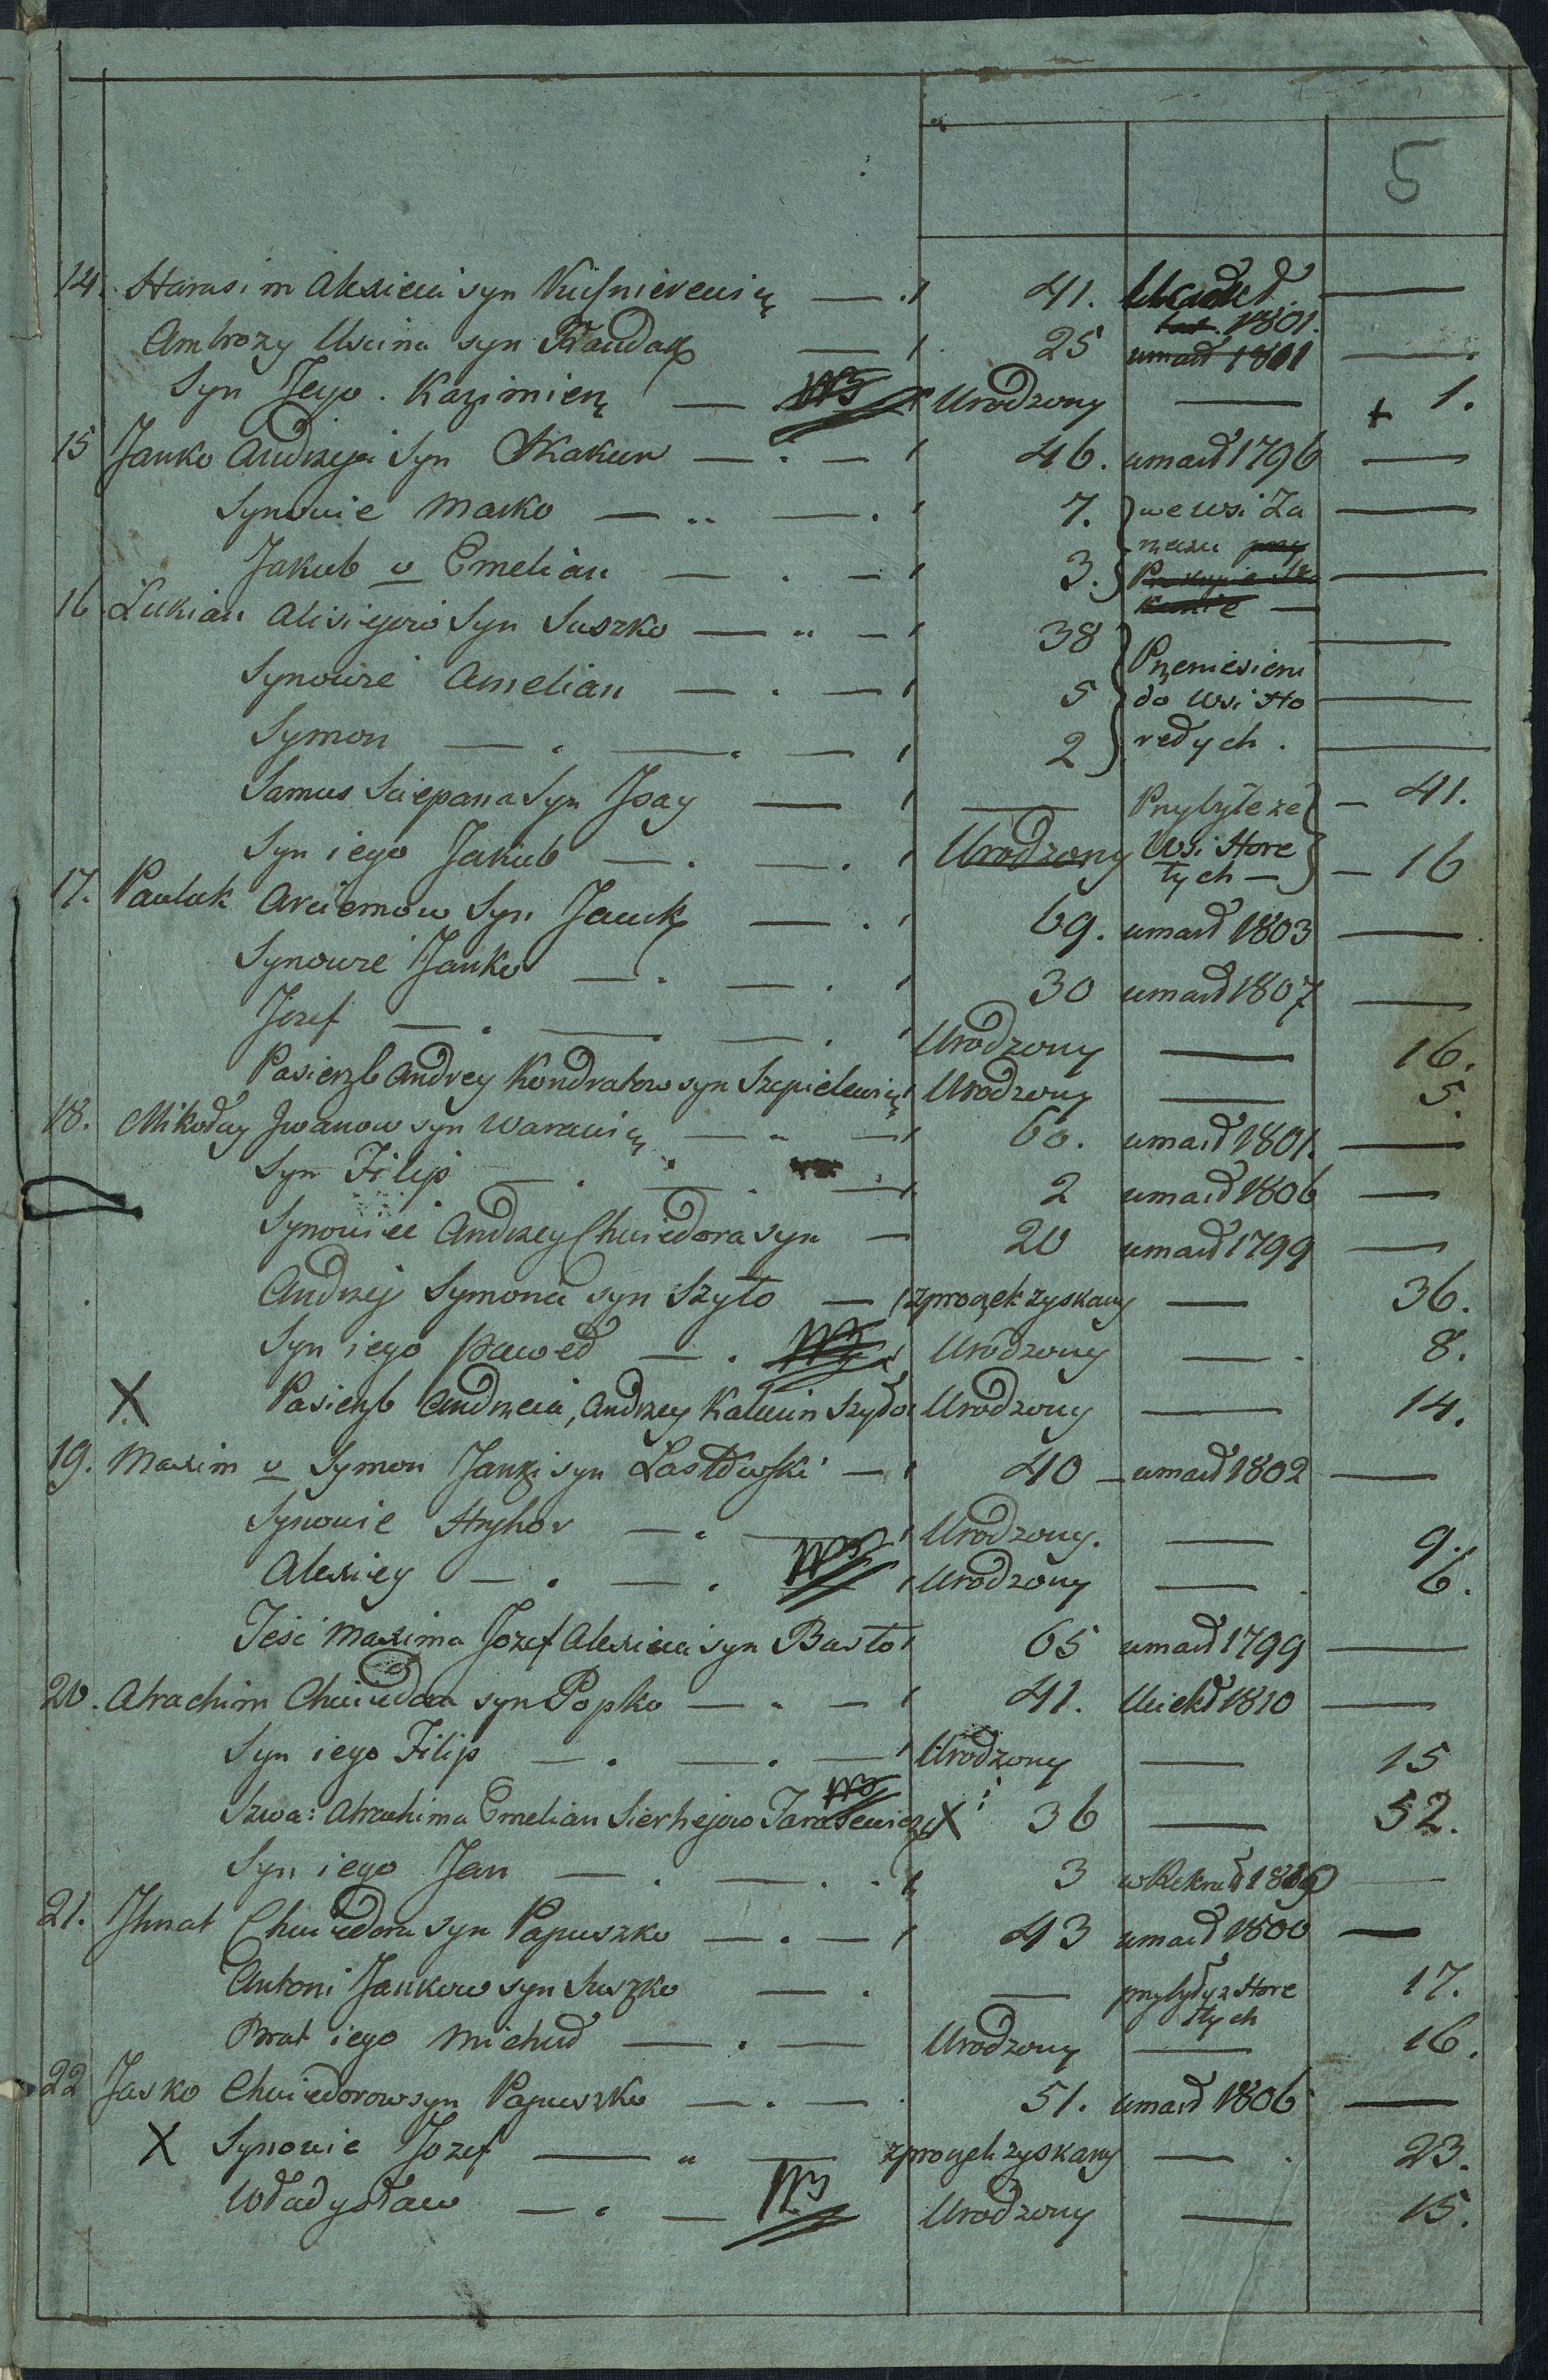 5
14. Harasim Alexieia syn Kuśnierewicz — 41. —
Ambrozy Uscina syn 25 umarł 1801 —
Syn Jego Kazimierz — Urodzony — + 1.
15 Janko Andrzeja Syn Skakun — 46. umarł 1796 —
Synowie Marko — 7. we wsi Za —
Jakub v Emelian — 3. —
16 Lukian Alisiejow Syn Suszko — 38 —
Synowie Amelian — 5 Przeniesieni do wsi Ho —
Symon — 2 rełych. —
Samus Sciepana Syn Jsay — — Przybyłe ze — 41.
Syn iego Jakub — Urodzony Wsi Hore łych — — 16
17. Pauluk Arciemow Syn Jauck — 69. umarł 1803 —
Synowie Janko — 30 umarł 1807 —
Jozef — Urodzony — 16.
Pasierzb Andrey Kondratow syn Szepielewicz Urodzony — 5.
18. Mikołay Jwanow syn Warawicz — 60. umarł 1801. —
Syn Filip — 2 umarł 1806 —
Synowiec Andrzey Chwiedora syn — 20 umarł 1799 —
Andrzej Symona syn Szyło — z proczek zyskany — 36.
Syn iego Paweł — Urodzony — 8.
X Pasierzb Andrzeia, Andrzey Kalenin Szyło Urodzony — 14.
19. Maxim v Symon Janki syn Lastowski — 40 — umarł 1802 —
Synowie Hryhor — Urodzony. — 9.
Alexiey — Urodzony — 6.
Teść Maxima Jozef Alexieia syn Basto 65 umarł 1799 —
20. Abrachim Chwiedora syn Popko — 41. Uciekł 1810 —
Syn iego Filip — Urodzony — 15
Szwa: Abrachima Emelian Sierhejow Tarasewicz X 36 — 52.
Syn iego Jan — 3 w Rekruta —
21. Jhnat Chwiedora syn Papuszko — 43 umarł 1800 —
Antoni Jankow syn Suszko — — przybyły z Hore łych 17.
Brat iego Michuł — Urodzony — 16.
22 Jasko Chwiedorow syn Papuszko — 51. umarł 1806 —
X Synowie Jozef — z proczek zyskany — 23.
Władysław — Urodzony — 15.